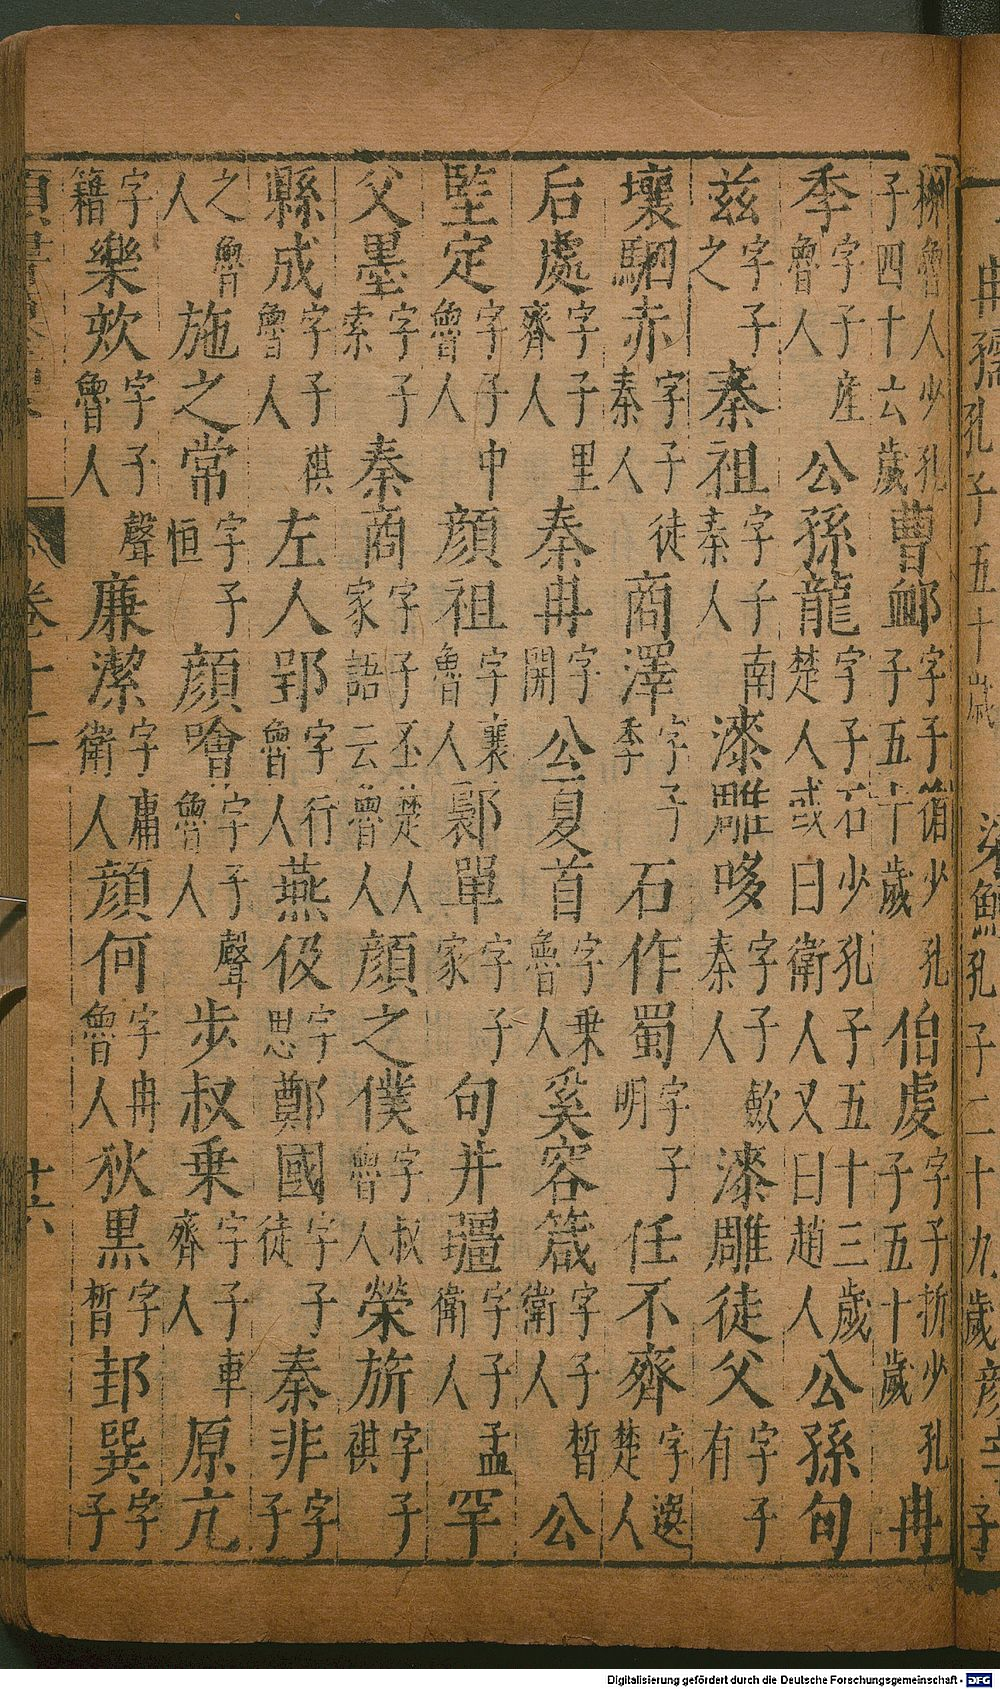 冉孺孔子五十歲 梁鱣孔子二十九歲顏 子
柳魯人少孔子四十六歲曹卹字子循少孔子五十歲伯虔字子折少孔子五十歲冉
季字子産魯人公孫龍字子石少孔子五十三歲楚人或曰衛人又曰趙人公孫句
兹字子之秦祖字子南秦人漆雕哆字子歛秦人漆雕徒父字子有
壤駟赤字子徒秦人商澤字子季石作蜀字子明任不齊字選楚人
后處字子里齊人秦冉字開公夏首字乗魯人奚容箴字子晳衛人公
堅定字子中魯人顏祖字襄魯人鄡單字子家句井疆字子孟衛人罕
父墨字子索秦商字子丕楚人家語云魯人顏之僕字叔魯人榮旂字子祺
縣成字子祺魯人左人郢字行魯人燕伋字思鄭國字子徒秦非字子
之魯人施之常字子恒顏噲字子聲魯人步叔乗字子車齊人原亢
字籍樂欬字子聲魯人廉潔字庸衛人顏何字冉魯人狄黒字晳邽巽字子
卷十
廿六
Digitalisierung gefördert durch die Deutsche Forschungsgemeinschaft - DFG